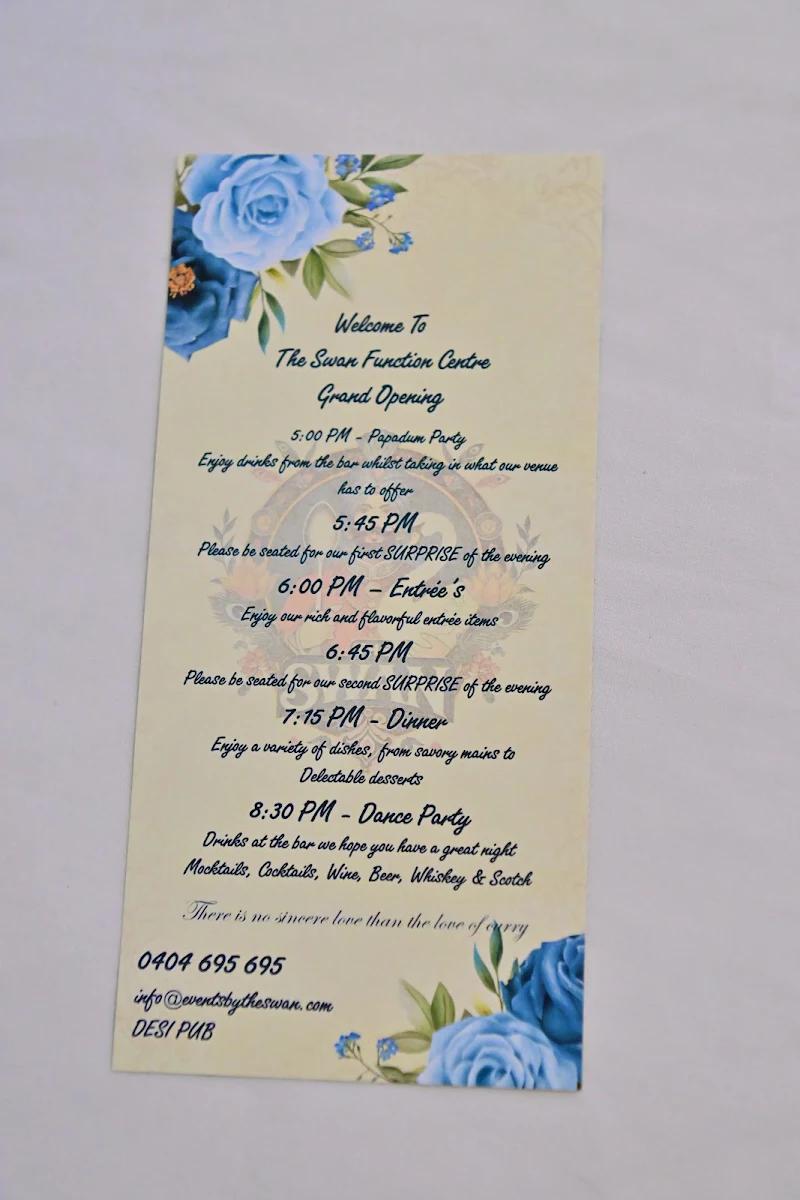 Welcome To
The Swan Function Centre
Grand Opening
5:00 PM - Papadum Party
Enjoy drinks from the bar whilst taking in what our venue
has to offer
5:45 PM
Please be seated for our first SURPRISE of the evening
6:00 PM – Entrée's
Enjoy our rich and flavorful entrée items
6:45 PM
Please be seated for our second SURPRISE of the evening
7:15 PM - Dinner
Enjoy a variety of dishes, from savory mains to
Delectable desserts
8:30 PM - Dance Party
Drinks at the bar we hope you have a great night
Mocktails, Cocktails, Wine, Beer, Whiskey & Scotch
There is no sincere love than the love of curry
0404 695 695
info@eventsbytheswan.com
DESI PUB